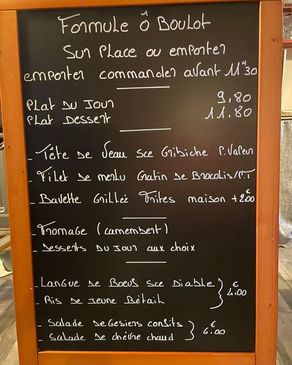 Formule Ô Boulot
Sur Place ou emporter
emporter commander avant 11H30
Plat du Jour 9,80
Plat Dessert 11.80
- Tête de Veau sce Gribiche P. Vapeur
- Filet de merlu Gratin de Brocolis/P.T
- Bavette Grillée Frites maison +2€00
- Fromage (camembert)
- Desserts du Jour aux choix
- Langue de Boeuf sce Diable
- Ris de Jeune Bétail } 4€00
- Salade de Gesiers confits
- Salade de chèvre chaud } 6€00